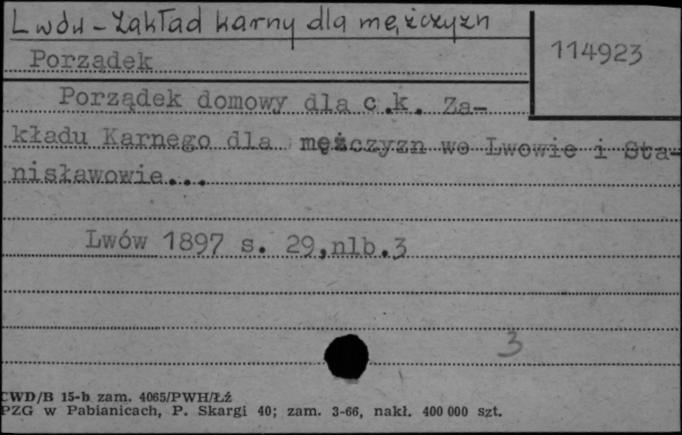 Lwów - Zakład karny dla mężczyzn
114923
Porządek
Porządek domowy dla c.k. Za-
kładu Karnego dla mężczyzn we Lwowie i Sta-
nisławowie...
Lwów 1897 s. 29,nlb.3
3
CWD/B 15-b zam. 4065/PWH/Łź
PZG w Pabianicach, P. Skargi 40; zam. 3-66, nakł. 400 000 szt.